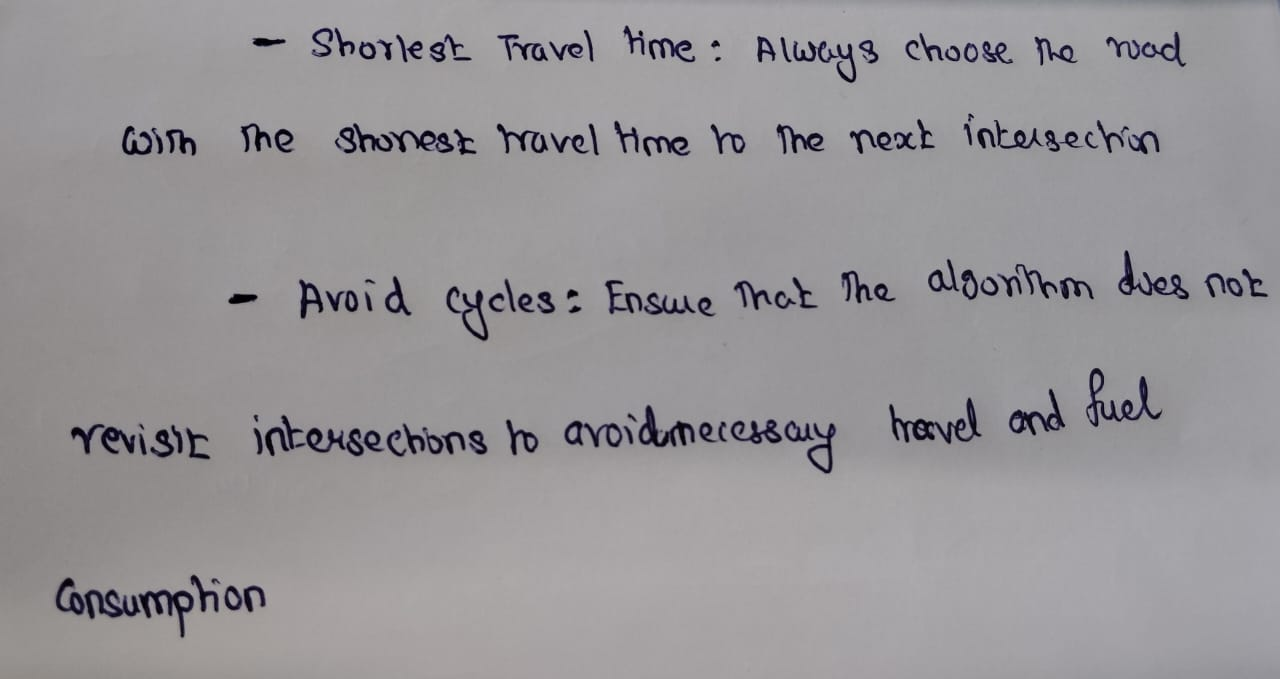 - Shortest Travel time : Always choose the road
with The shortest travel time to The next intersection
- Avoid cycles : Ensure That The algorithm does not
revisit intersections to avoidunnecessary travel and fuel
Consumption